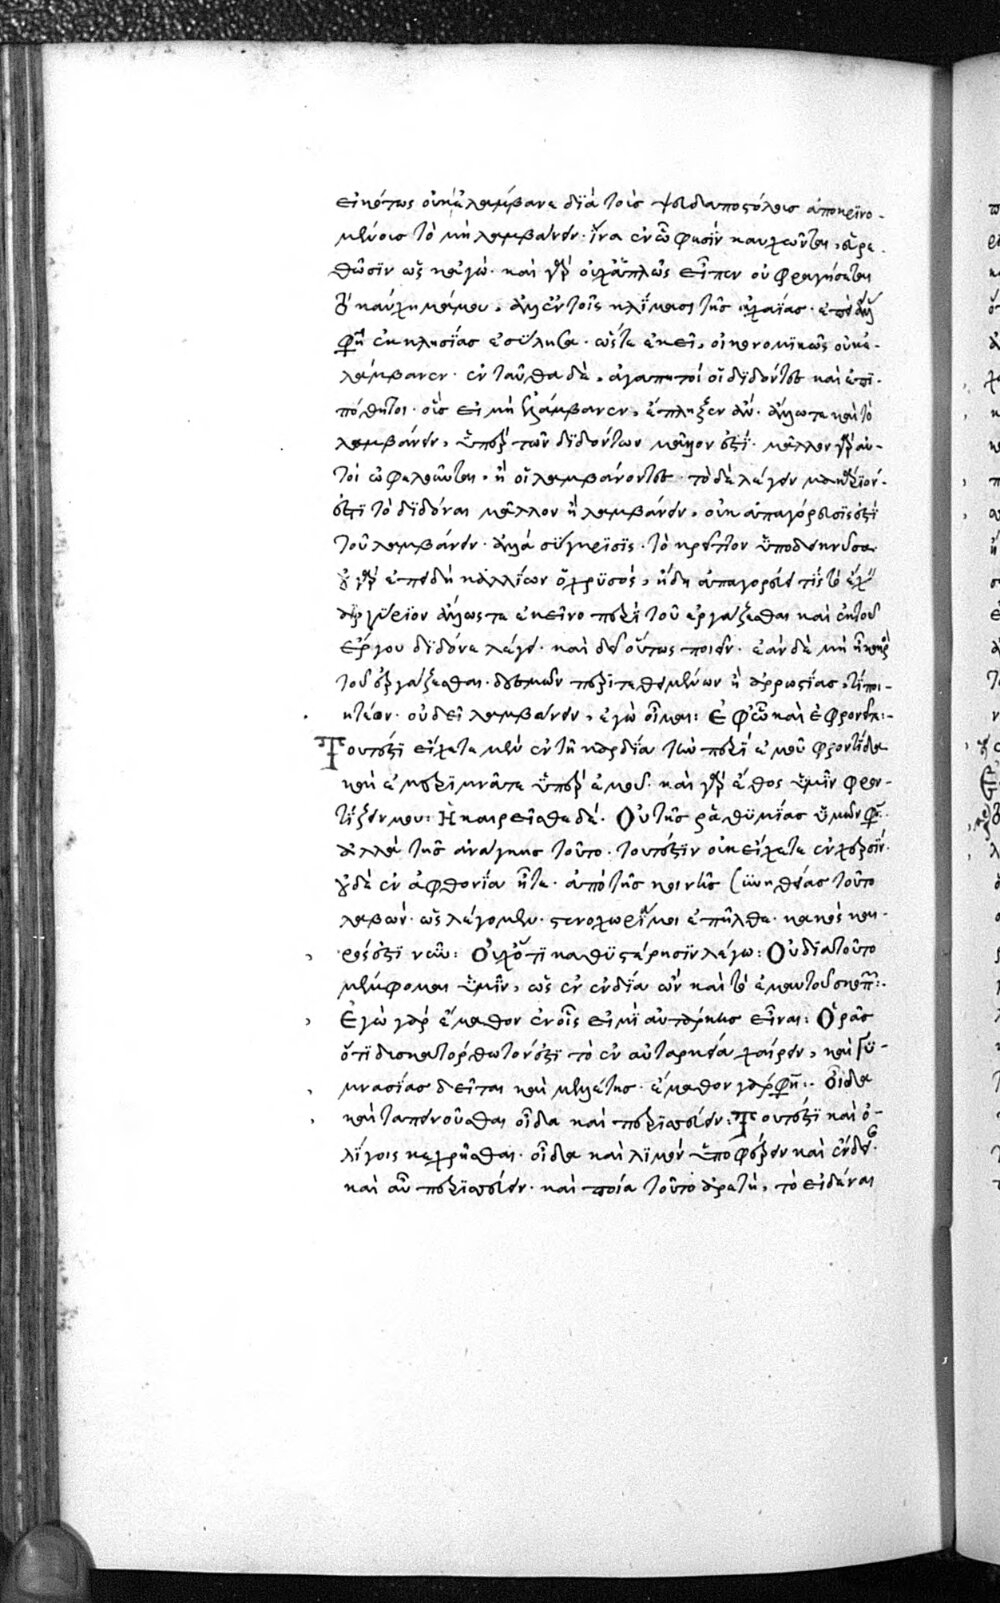 εἰκότως οὐκ ἐλάμβανε διὰ τοὺς ψευδαποστόλους ἀποκρινο-
μένοις τὸ μὴ λαμβάνειν. ἵνα ἐν ᾧ φησὶν καυχῶνται, εὑρε-
θῶσιν ὡς κἀγώ. καὶ γὰρ οὐχ ἁπλῶς εἶπεν οὐ φραγήσεται
ἡ καύχησίς μου, ἀλλ' ἐν τοῖς κλίμασι τῆς ἀχαΐας. ἐπεὶ ἄλλας
φησὶν ἐκκλησίας ἐσύλησα. ὥστε ἐκεῖ, οἰκονομικῶς οὐκ ἐ-
λάμβανεν. ἐνταῦθα δὲ, ἀγαπητοί οἱ διδόντες καὶ ἐπι-
πόθητοι. οὓς εἰ μὴ ἐλάμβανεν, ἔπληξεν ἄν. ἄλλως τε καὶ τὸ
λαμβάνειν, ὑπὲρ τῶν διδόντων μᾶλλον ἐστί. μᾶλλον γὰρ αὐ-
τοὶ ὠφελοῦνται, ἢ οἱ λαμβάνοντες. τὸ δὲ λέγειν μακάριόν
ἐστι τὸ διδόναι μᾶλλον ἢ λαμβάνειν, οὐκ ἀπαγόρευσίς ἐστι
τοῦ λαμβάνειν. ἀλλὰ σύγκρισις. τὸ κρεῖττον ὑποδεικνύουσα.
οὐ γὰρ ἐπειδὴ καλλίων ὁ χρυσός, ἤδη ἀπαγορεύει τις τὸ ἔχειν
ἀργύριον ἄλλως τε ἐκεῖνο περὶ τοῦ ἐργάζεσθαι καὶ ἐκ τοῦ
ἔργου διδόναι λέγει. καὶ δεῖ οὕτως ποιεῖν. ἐὰν δὲ μὴ ᾖ καιρὸς
τοῦ ἐργάζεσθαι. δεσμῶν περιτεθειμένων ἢ ἀρρωστίας, τί ποι-
ητέον. οὐ δεῖ λαμβάνειν, ἐγὼ οἶμαι: Ἐφ' ᾧ καὶ ἐφρονεῖτε:-
Τουτέστι εἴχετε μὲν ἐν τῇ καρδίᾳ τὴν περὶ ἐμοῦ φροντίδα
καὶ ἐμεριμνᾶτε ὑπὲρ ἐμοῦ. καὶ γὰρ ἔθος ὑμῖν φρον-
τίζειν μου: Ἠκαιρεῖσθε δέ. Οὐ τῆς ῥᾳθυμίας ὑμῶν φησιν.
ἀλλὰ τῆς ἀνάγκης τοῦτο. τουτέστιν οὐκ εἴχετε ἐν χερσίν.
οὐδὲ ἐν ἀφθονίᾳ ἦτε. ἀπὸ τῆς κοινῆς συνηθείας τοῦτο
λαβών. ὡς λέγομεν. στενοχωρία μοι ἐπῆλθε. κακὸς και-
ρός ἐστι νῦν: Οὐχ ὅτι καθ' ὑστέρησιν λέγω: Οὐ διὰ τοῦτο
μέμφομαι ὑμῖν, ὡς ἐν ἐνδείᾳ ὢν καὶ τὸ ἐμαυτοῦ σκοπῶν:
Ἐγὼ γὰρ ἔμαθον ἐν οἷς εἰμὶ αὐτάρκης εἶναι: Ὁρᾶς
ὅτι δυσκατόρθωτόν ἐστι τὸ ἐν αὐταρκείᾳ χαίρειν, καὶ γυ-
μνασίας δεῖται καὶ μελέτης. ἔμαθον γάρ φησιν:- Οἶδα
καὶ ταπεινοῦσθαι οἶδα καὶ περισσεύειν: Τουτέστι καὶ ὀ-
λίγοις κεχρῆσθαι. οἶδα καὶ λιμὸν ὑποφέρειν καὶ ἔνδειαν.
καὶ αὖ περισσεύειν. καὶ ποία τοῦτο ἀρετή, τὸ εἰδέναι